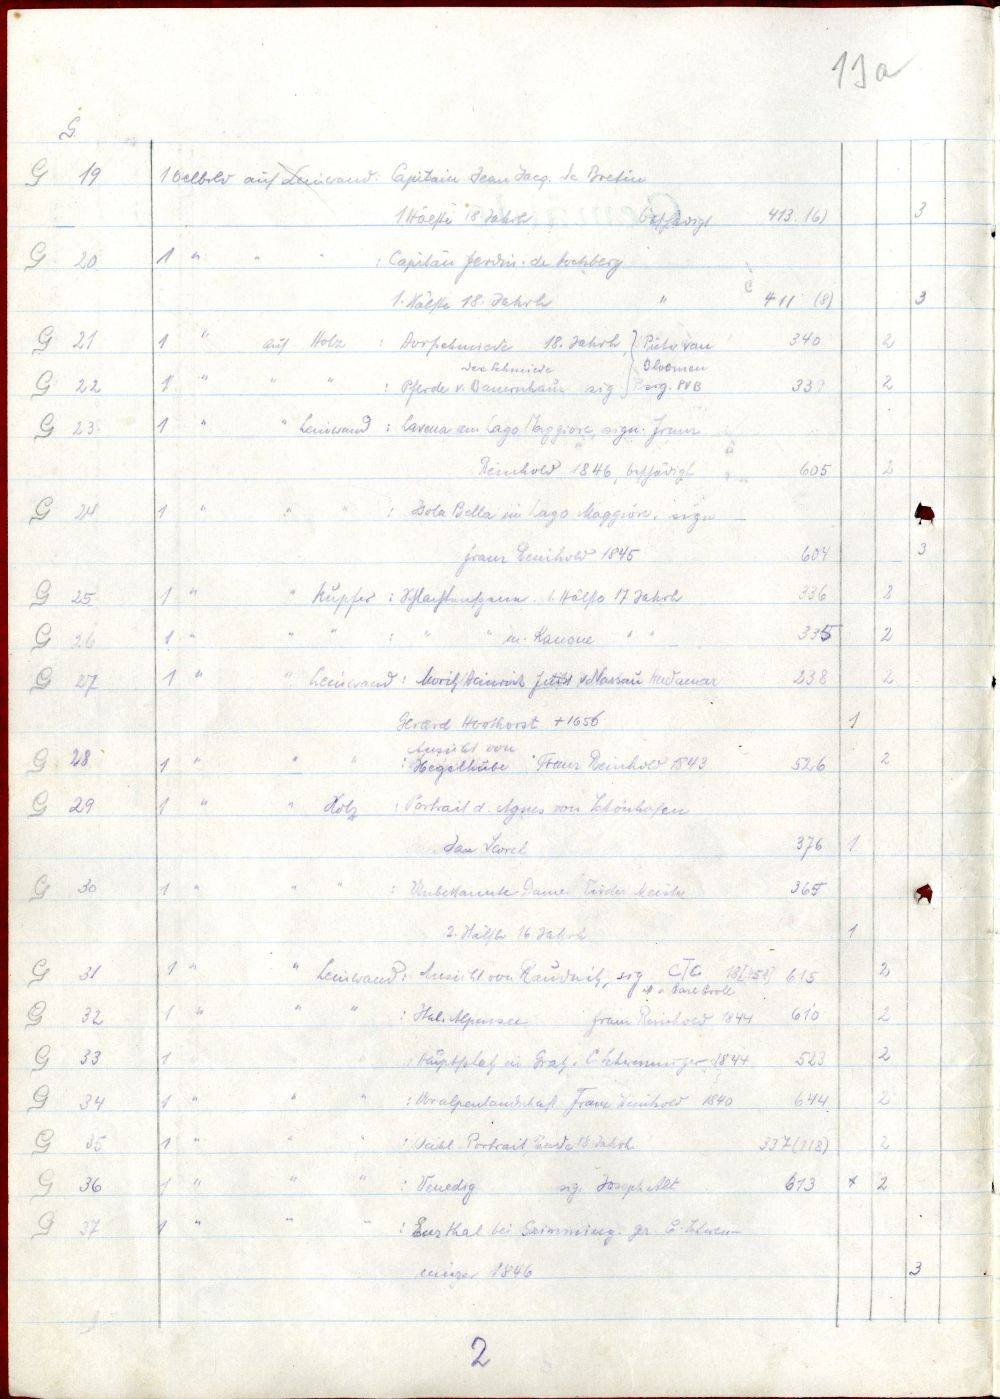 19a
G.
G 19 1 Oelbild auf Leinwand: Capitain Jean Jacq. de Bretin
1 Hälfte 18 Jahrh beschädigt 413. (6) 3
G 20 1 " " " : Capitän Ferdin. de Hochberg
1. Hälfte 18. Jahrh " 411 (8) 3
G 21 1 " auf Holz : Dorfschmiede 18. Jahrh, Pieter van 340 2
der Schmiede Bloemen
G 22 1 " " " : Pferde v. Bauernhaus sig sig. PVB 339 2
G 23 1 " " Leinwand : Lavena am Lago Maggiore, sign. Franz
Reinhold 1846, beschädigt 605 2
G 24 1 " " " : Isola Bella im Lago Maggiore, sign
Franz Reinhold 1845 604 3
G 25 1 " " Kupfer : 1. Hälfte 17 Jahrh 336 2
G 26 1 " " " : " " m. Kanone " " 335 2
G 27 1 " " Leinwand : Moritz Heinrich Fürst v Nassau Hadamar 238 2
Gerard Honthorst +1656 1
Ansicht von
G 28 1 " " " : Franz Reinhold 1843 526 2
G 29 1 " " Holz : Portrait d. Agnes von Schönhofen
Jan Scorel 376 1
G 30 1 " " " : Unbekannte Dame Meister 365
2. Hälfte 16 Jahrh 1
G 31 1 " " Leinwand : Ansicht von Raudnitz, sig 615 2
G 32 1 " " " : Franz Reinhold 1844 610 2
G 33 1 : Hauptplatz in Graz. C. Schwenninger, 1844 523 2
G 34 1 " " " : Voralpenlandschaft Franz Reinhold 1840 644 2
G 35 1 " " " : Portrait 18 Jahrh 337 (118) 2
G 36 1 " " " : Venedig sig. Joseph Alt 613 x 2
G 37 1 " " " : Ennsthal bei Grimming. gr. C. Schwenn
ninger 1846 3
2